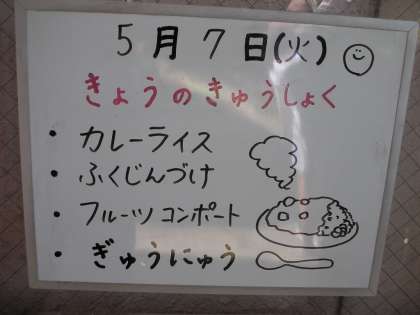 5月7日(火)
きょうのきゅうしょく
・カレーライス
・ふくじんづけ
・フルーツコンポート
・ぎゅうにゅう